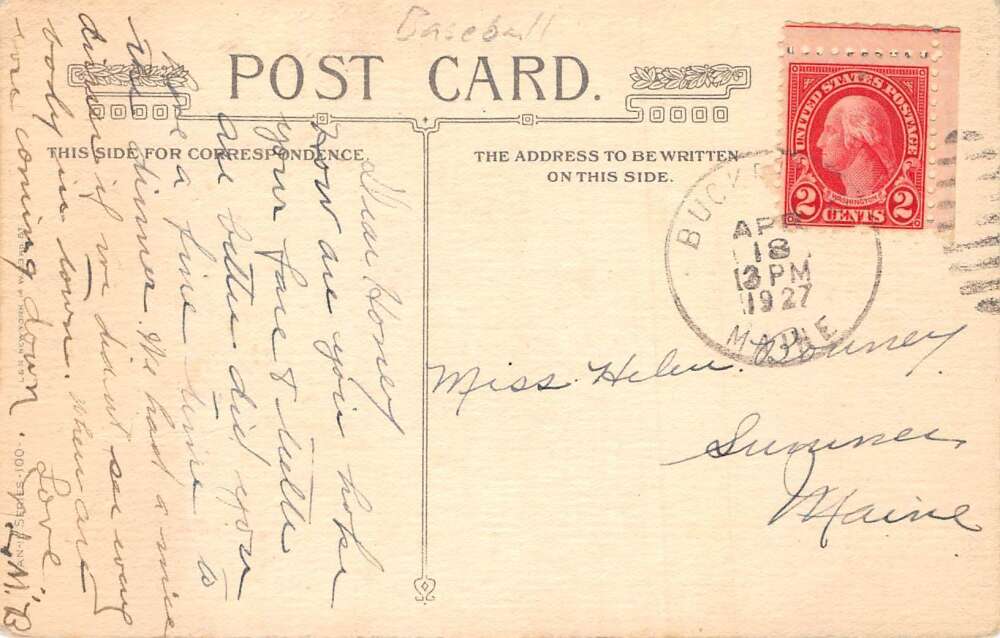 Baseball
POST CARD.
THIS SIDE FOR CORRESPONDENCE
THE ADDRESS TO BE WRITTEN
ON THIS SIDE.
UNITED STATES POSTAGE
WASHINGTON
2 CENTS 2
BUCK
APR
18
3 PM
1927
MAINE
Miss Helen Bonney
Sumner
Maine
Dear Honey
How are you hope
your face & tooth
are better did you
have a fine time to
the dinner. We had a nice
dinner if we didn't see every
body in town. When are
you coming down.
Love
M.B
SERIES-100-